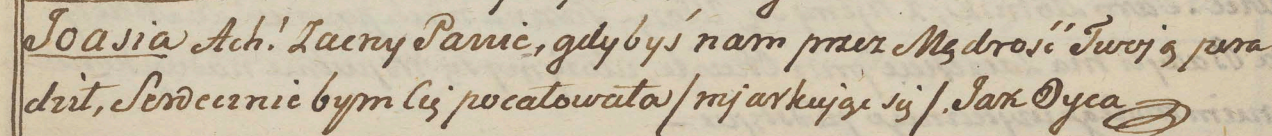 Joasia Ach! Zacny Panie, gdybyś nam przez Mądrość Twoją pora
dził, Serdecznie bym Cię pocałowała /mjarkując się/. Jak Oyca